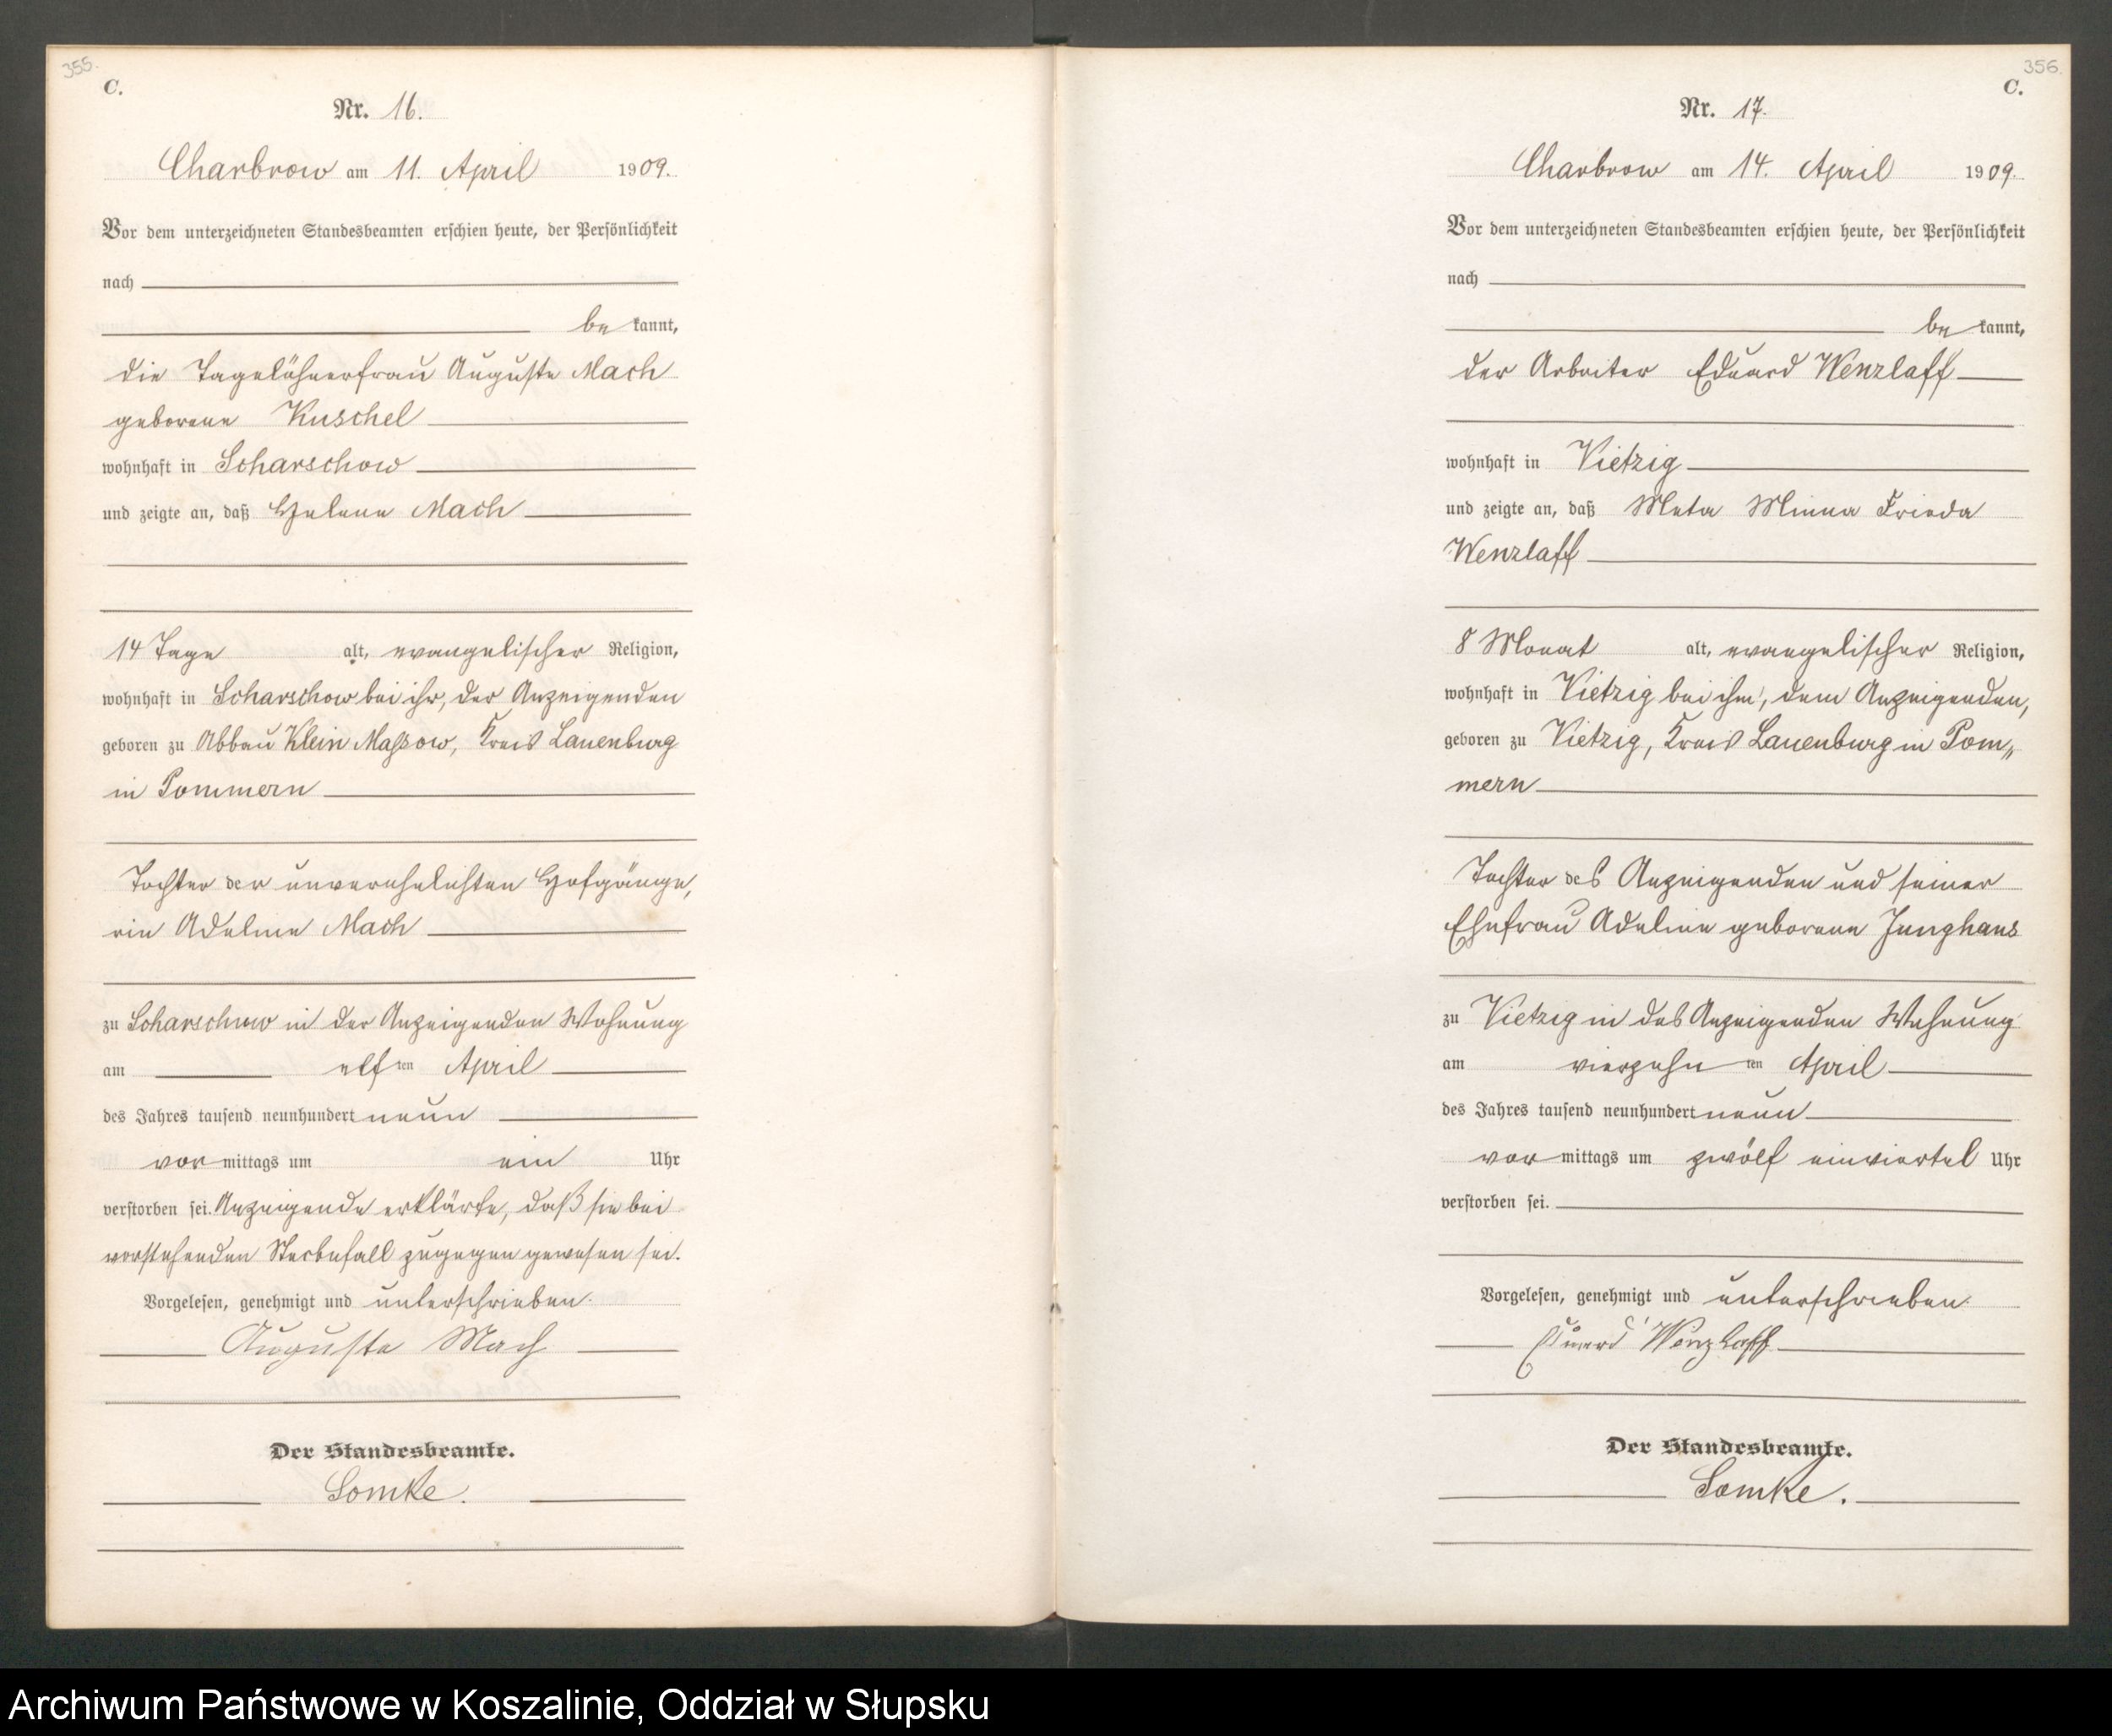 355.
C.
Nr. 16.
Charbrow am 11. April 1909.
Vor dem unterzeichneten Standesbeamten erschien heute, der Persönlichkeit
nach
be kannt,
die Tagelöhnerfrau Auguste Mach
geborene Kuschel
wohnhaft in Scharschow
und zeigte an, daß Helene Mach
14 Tage alt, evangelischer Religion,
wohnhaft in Scharschow bei ihr, der Anzeigenden
geboren zu Abbau Klein Massow, Kreis Lauenburg
in Pommern
Tochter der unverehelichten Hofgänge,
rin Adeline Mach
zu Scharschow in der Anzeigenden Wohnung
am elften April
des Jahres tausend neunhundert neun
vor mittags um ein Uhr
verstorben sei. Anzeigende erklärte, daß sie bei
vorstehenden Sterbefall zugegen gewesen sei.
Vorgelesen, genehmigt und unterschrieben.
Auguste Mach
Der Standesbeamte.
Lomke.
356.
C.
Nr. 17.
Charbrow am 14. April 1909.
Vor dem unterzeichneten Standesbeamten erschien heute, der Persönlichkeit
nach
be kannt,
der Arbeiter Eduard Wenzlaff
wohnhaft in Vietzig
und zeigte an, daß Meta Minna Frieda
Wenzlaff
8 Monat alt, evangelischer Religion,
wohnhaft in Vietzig bei ihm, dem Anzeigenden,
geboren zu Vietzig, Kreis Lauenburg in Pom„
mern
Tochter des Anzeigenden und seiner
Ehefrau Adeline geborene Junghans
zu Vietzig in des Anzeigenden Wohnung
am vierzehn ten April
des Jahres tausend neunhundert neun
vor mittags um zwölf einviertel Uhr
verstorben sei.
Vorgelesen, genehmigt und unterschrieben.
Eduard Wenzlaff
Der Standesbeamte.
Lomke.
Archiwum Państwowe w Koszalinie, Oddział w Słupsku